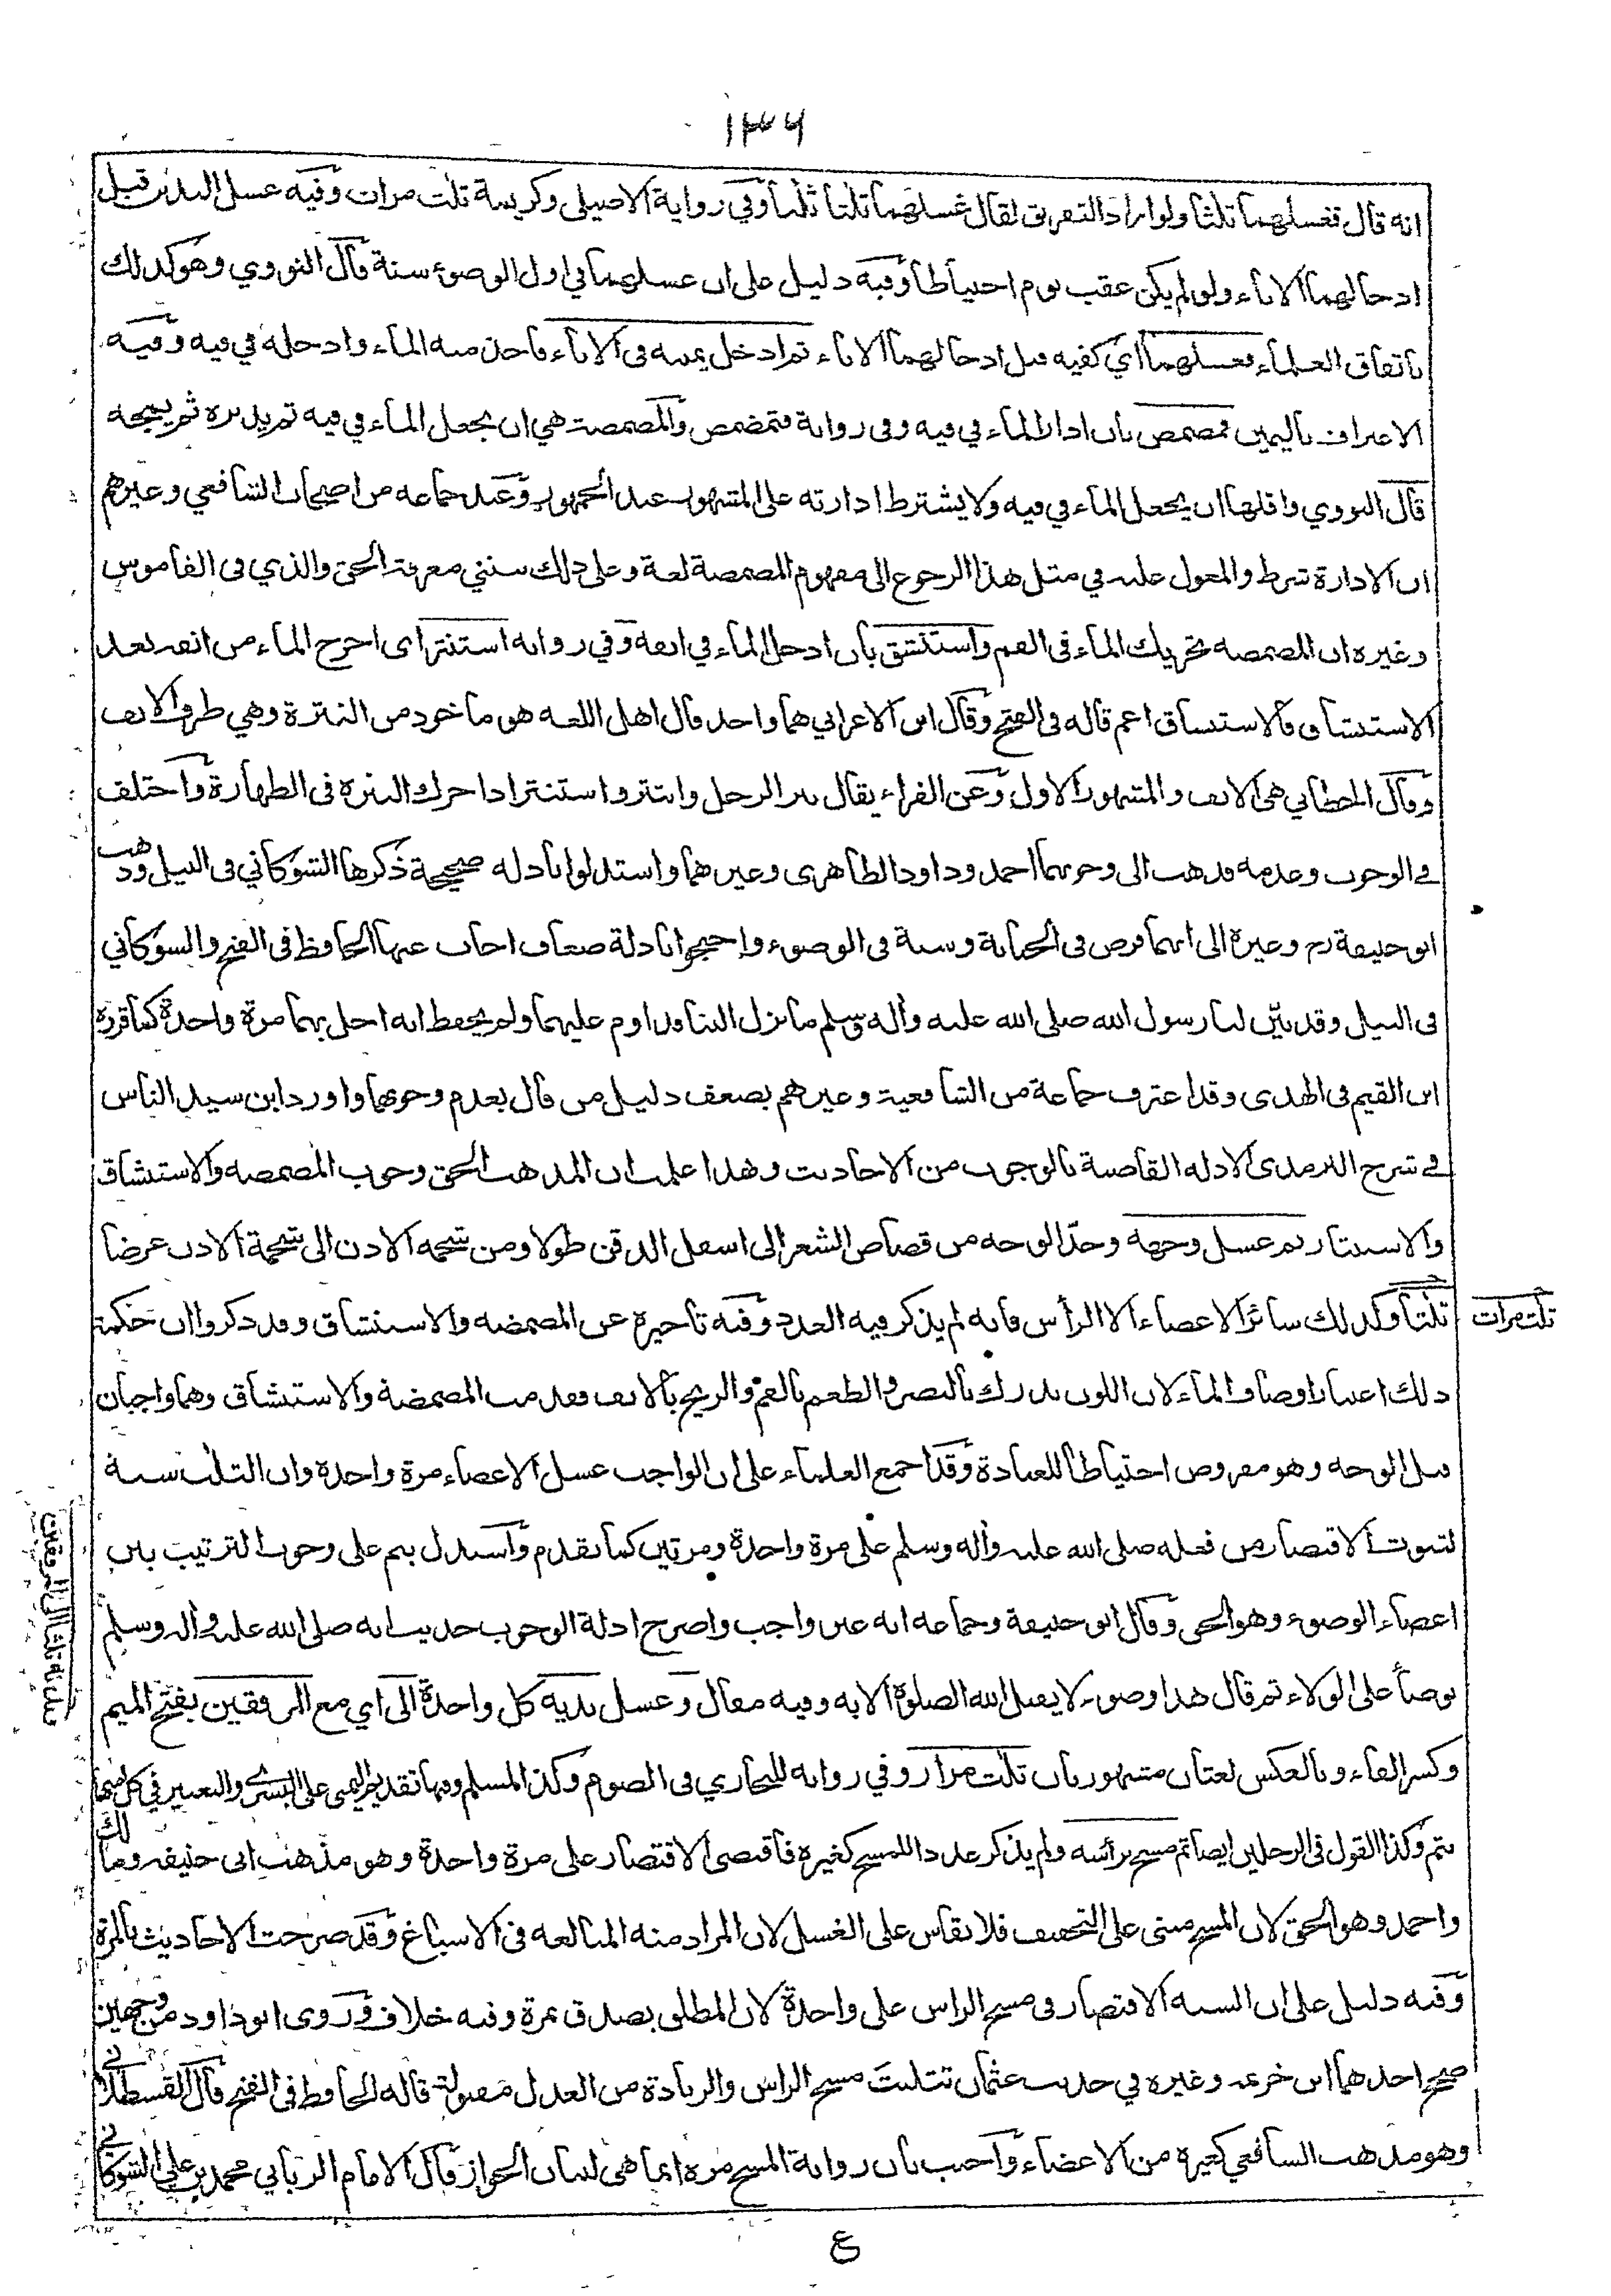 ١٣٦
انه قال فغسلهما ثلثا ولو اراد التفريق لقال غسلهما ثلثا ثلثا وفي رواية الاصيلي وكريمة ثلث مرات وفيه غسل اليدين قبل
ادخالهما الاناء ولو لم يكن عقب نوم احتياطا وفيه دليل على ان غسلهما في اول الوضوء سنة قال النووي وهو كذلك
باتفاق العلماء فغسلهما اي كفيه قبل ادخالهما الاناء ثم ادخل يمينه فى الاناء فاخذ منه الماء وادخله في فيه وفيه
الاغتراف باليمين فمضمض بان ادار الماء في فيه وفى رواية فتمضمض والمضمضة هي ان يجعل الماء في فيه ثم يديره ثم يمجه
قال النووي واقلها ان يجعل الماء في فيه ولا يشترط ادارته على المشهور عند الجمهور وعند جماعه من اصحاب الشافعي وغيرهم
ان الادارة شرط والمعول عليه في مثل هذا الرجوع الى مفهوم المضمضة لغة وعلى ذلك تبتني معرفة الحق والذي فى القاموس
وغيره ان المضمضه تحريك الماء فى الفم واستنشق بان ادخل الماء في انفه وفي روايه استنثر اى اخرج الماء من انفه بعد
الاستنشاق فالاستنشاق اعم قاله فى الفتح وقال ابن الاعرابي هما واحد قال اهل اللغه هو ماخوذ من النثرة وهي طرف الانف
وقال الخطابي هى الانف والمشهور الاول وعن الفراء يقال نثر الرجل وانتثر واستنثر اذا حرك النثرة فى الطهارة واختلف
في الوجوب وعدمه فذهب الى وجوبهما احمد وداود الظاهرى وغيرهما واستدلوا بادله صحيحة ذكرها الشوكاني فى النيل وذهب
ابو حنيفة رح وغيره الى انهما فرض فى الجنابة وسنة فى الوضوء واحتجوا بادلة ضعاف اجاب عنها الحافظ فى الفتح والشوكاني
فى النيل وقد بيّن لنا رسول الله صلى الله عليه وآله وسلم ما نزل الينا وداوم عليهما ولم يحفظ انه اخل بهما مرة واحدة كما قرره
ابن القيم فى الهدى وقد اعترف جماعة من الشافعية وغيرهم بضعف دليل من قال بعدم وجوبهما واورد ابن سيد الناس
في شرح الترمذى الادله القاضية بالوجوب من الاحاديث وهذا علمت ان المذهب الحق وجوب المضمضه والاستنشاق
والاستنثار ثم غسل وجهه وحدّ الوجه من قصاص الشعر الى اسفل الذقن طولا ومن شحمه الاذن الى شحمة الاذن عرضا
ثلثا وكذلك سائر الاعضاء الا الرأس فانه لم يذكر فيه العدد وفيه تاخيره عن المضمضه والاستنشاق وقد ذكروا ان حكمة
ثلث مرات
ذلك اعتبار اوصاف الماء لان اللون يدرك بالبصر والطعم بالفم والريح بالانف فقدمت المضمضة والاستنشاق وهما واجبان
قبل الوجه وهو مفروض احتياطا للعبادة وقد اجمع العلماء على ان الواجب غسل الاعضاء مرة واحدة وان الثلث سنة
لثبوت الاقتصار من فعله صلى الله عليه وآله وسلم على مرة واحدة ومرتين كما تقدم واستدل بثم على وجوب الترتيب بين
اعضاء الوضوء وهو الحق وقال ابو حنيفة وجماعه انه غير واجب واصرح ادلة الوجوب حديث انه صلى الله عليه وآله وسلم
توضأ على الولاء ثم قال هذا وضوء لا يقبل الله الصلوة الا به وفيه مقال وغسل يديه كل واحدة الى اي مع المرفقين بفتح الميم
وكسر الفاء وبالعكس لغتان مشهورتان ثلث مرار وفي روايه للبخاري فى الصوم وكذا لمسلم وفيها تقديم اليمنى على اليسرى والتعبير في كل منهما
بثم وكذا القول فى الرجلين ايضا ثم مسح برأسه ولم يذكر عددا للمسح كغيره فاقتضى الاقتصار على مرة واحدة وهو مذهب ابى حنيفه ومالك
واحمد وهو الحق لان المسح مبنى على التخفيف فلا يقاس على الغسل لان المراد منه المبالغه فى الاسباغ وقد صرحت الاحاديث بالمرة
وفيه دليل على ان السنه الاقتصار فى مسح الراس على واحدة لان المطلق يصدق بمرة وفيه خلاف وروى ابو داود من وجهين
صحح احدهما ابن خزيمه وغيره في حديث عثمان تثليث مسح الراس والزيادة من العدل مقبولة قاله الحافظ فى الفتح قال القسطلاني
وهو مذهب الشافعي كغيره من الاعضاء واجيب بان رواية المسح مرة انما هى لبيان الجواز قال الامام الرباني محمد بن علي الشوكاني
ع